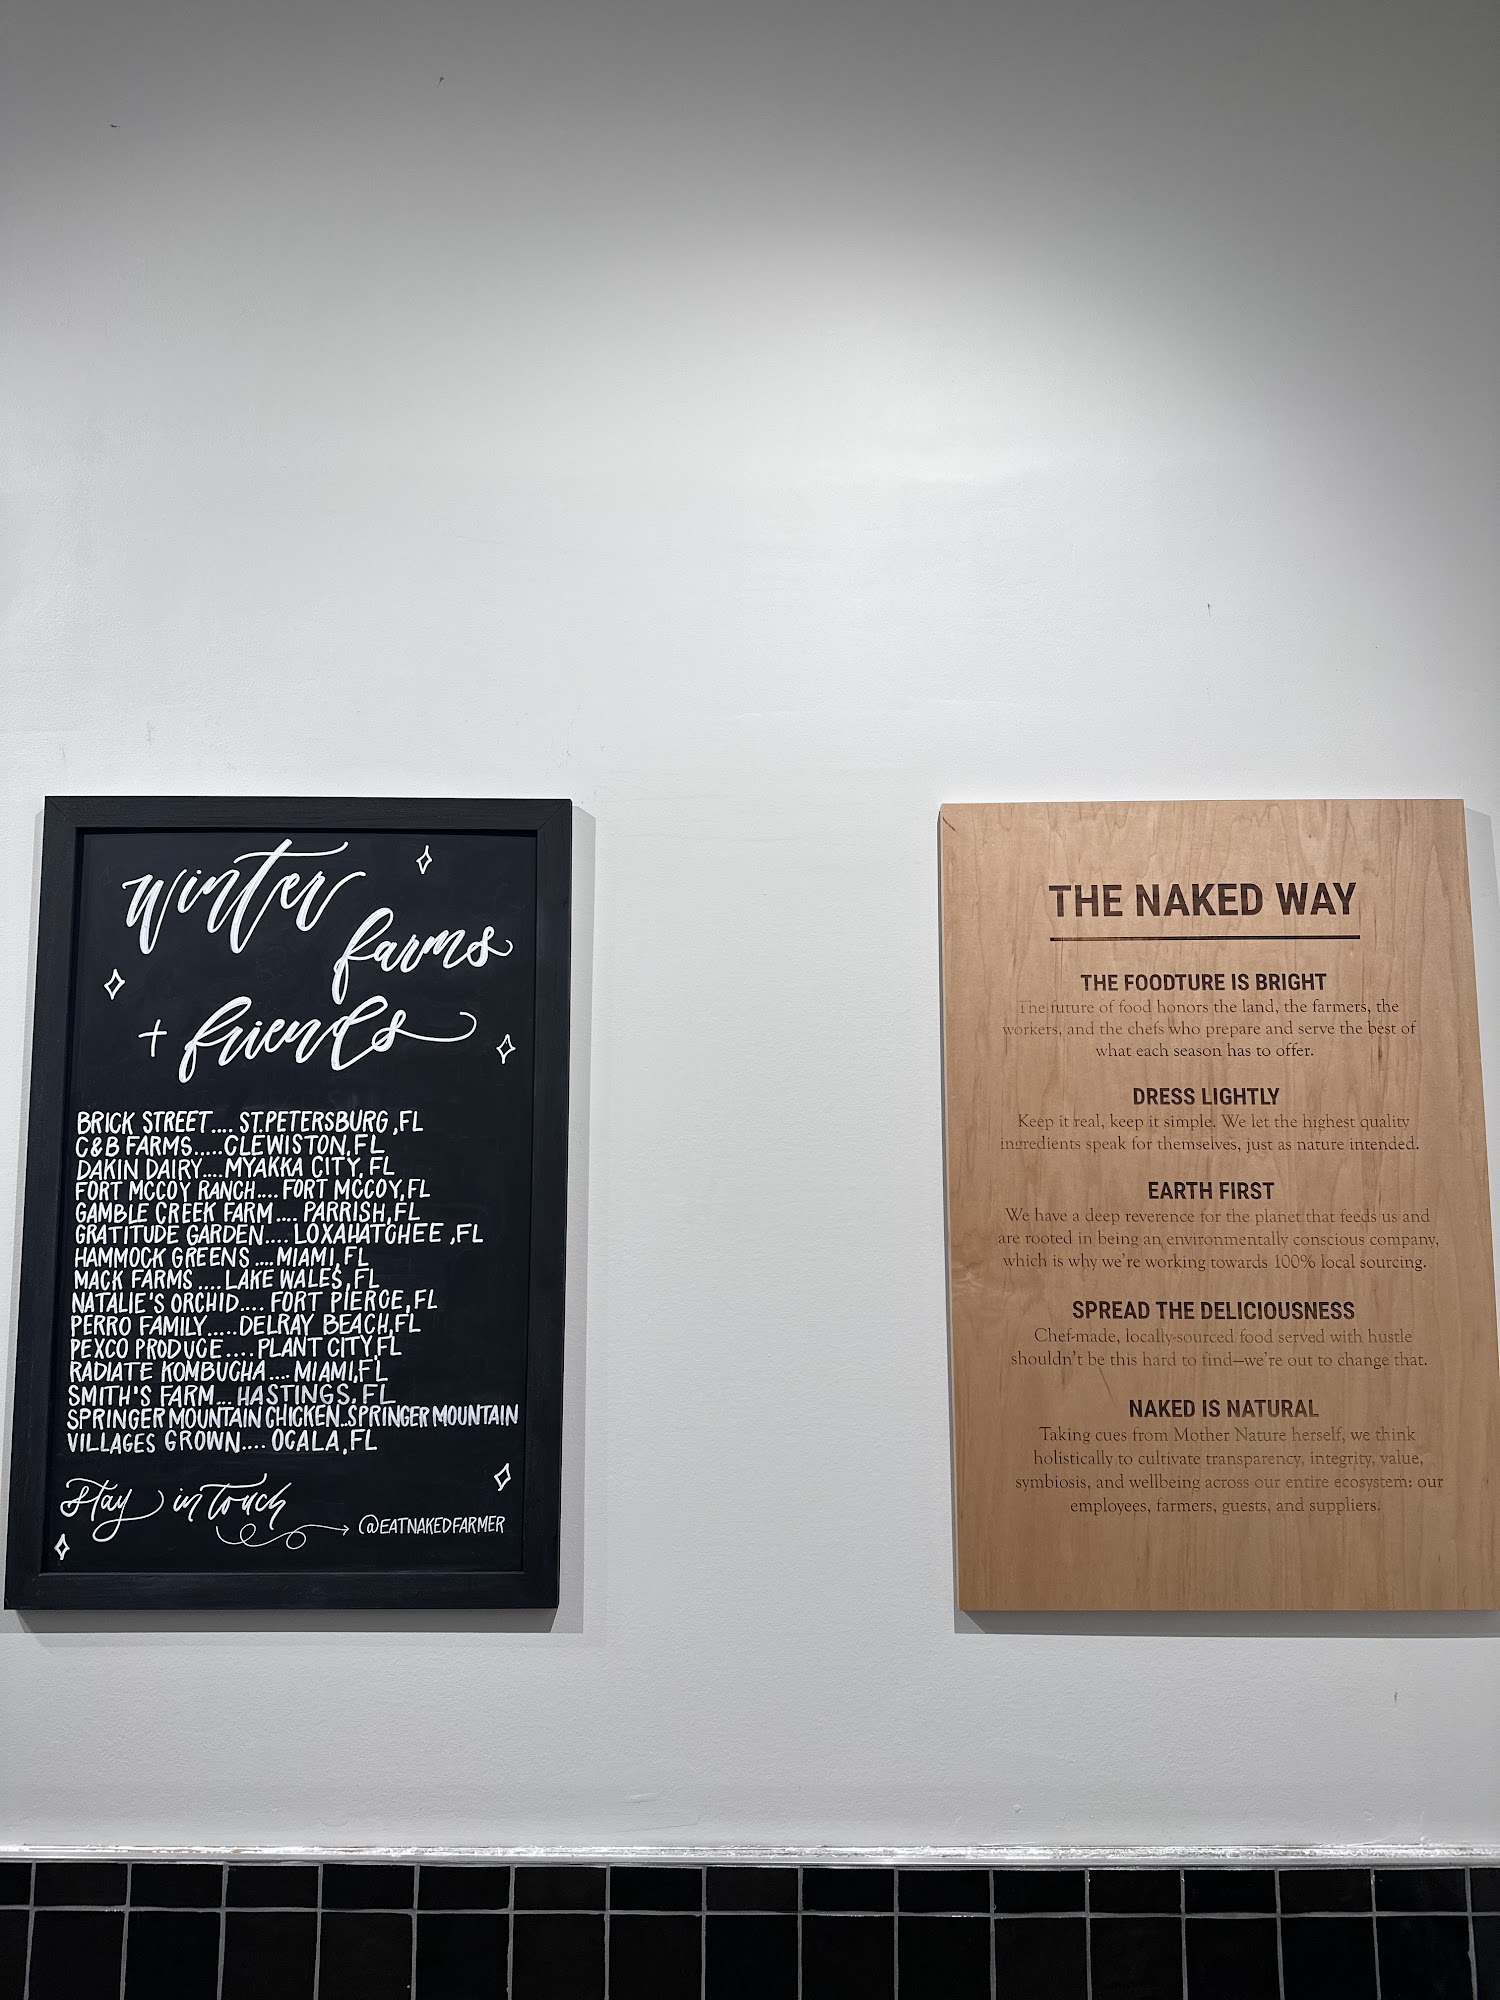 winter
farms
+ friends
BRICK STREET.... ST.PETERSBURG, FL
C&B FARMS.....CLEWISTON, FL
DAKIN DAIRY....MYAKKA CITY, FL
FORT MCCOY RANCH.... FORT MCCOY, FL
GAMBLE CREEK FARM.... PARRISH, FL
GRATITUDE GARDEN.... LOXAHATCHEE, FL
HAMMOCK GREENS ....MIAMI, FL
MACK FARMS ....LAKE WALES, FL
NATALIE'S ORCHID.... FORT PIERCE, FL
PERRO FAMILY.....DELRAY BEACH, FL
PEXCO PRODUCE....PLANT CITY, FL
RADIATE KOMBUCHA....MIAMI, FL
SMITH'S FARM...HASTINGS, FL
SPRINGER MOUNTAIN CHICKEN..SPRINGER MOUNTAIN
VILLAGES GROWN.... OCALA, FL
stay in touch
@EATNAKEDFARMER
THE NAKED WAY
THE FOODTURE IS BRIGHT
The future of food honors the land, the farmers, the
workers, and the chefs who prepare and serve the best of
what each season has to offer.
DRESS LIGHTLY
Keep it real, keep it simple. We let the highest quality
ingredients speak for themselves, just as nature intended.
EARTH FIRST
We have a deep reverence for the planet that feeds us and
are rooted in being an environmentally conscious company,
which is why we're working towards 100% local sourcing.
SPREAD THE DELICIOUSNESS
Chef-made, locally-sourced food served with hustle
shouldn't be this hard to find—we're out to change that.
NAKED IS NATURAL
Taking cues from Mother Nature herself, we think
holistically to cultivate transparency, integrity, value,
symbiosis, and wellbeing across our entire ecosystem: our
employees, farmers, guests, and suppliers.